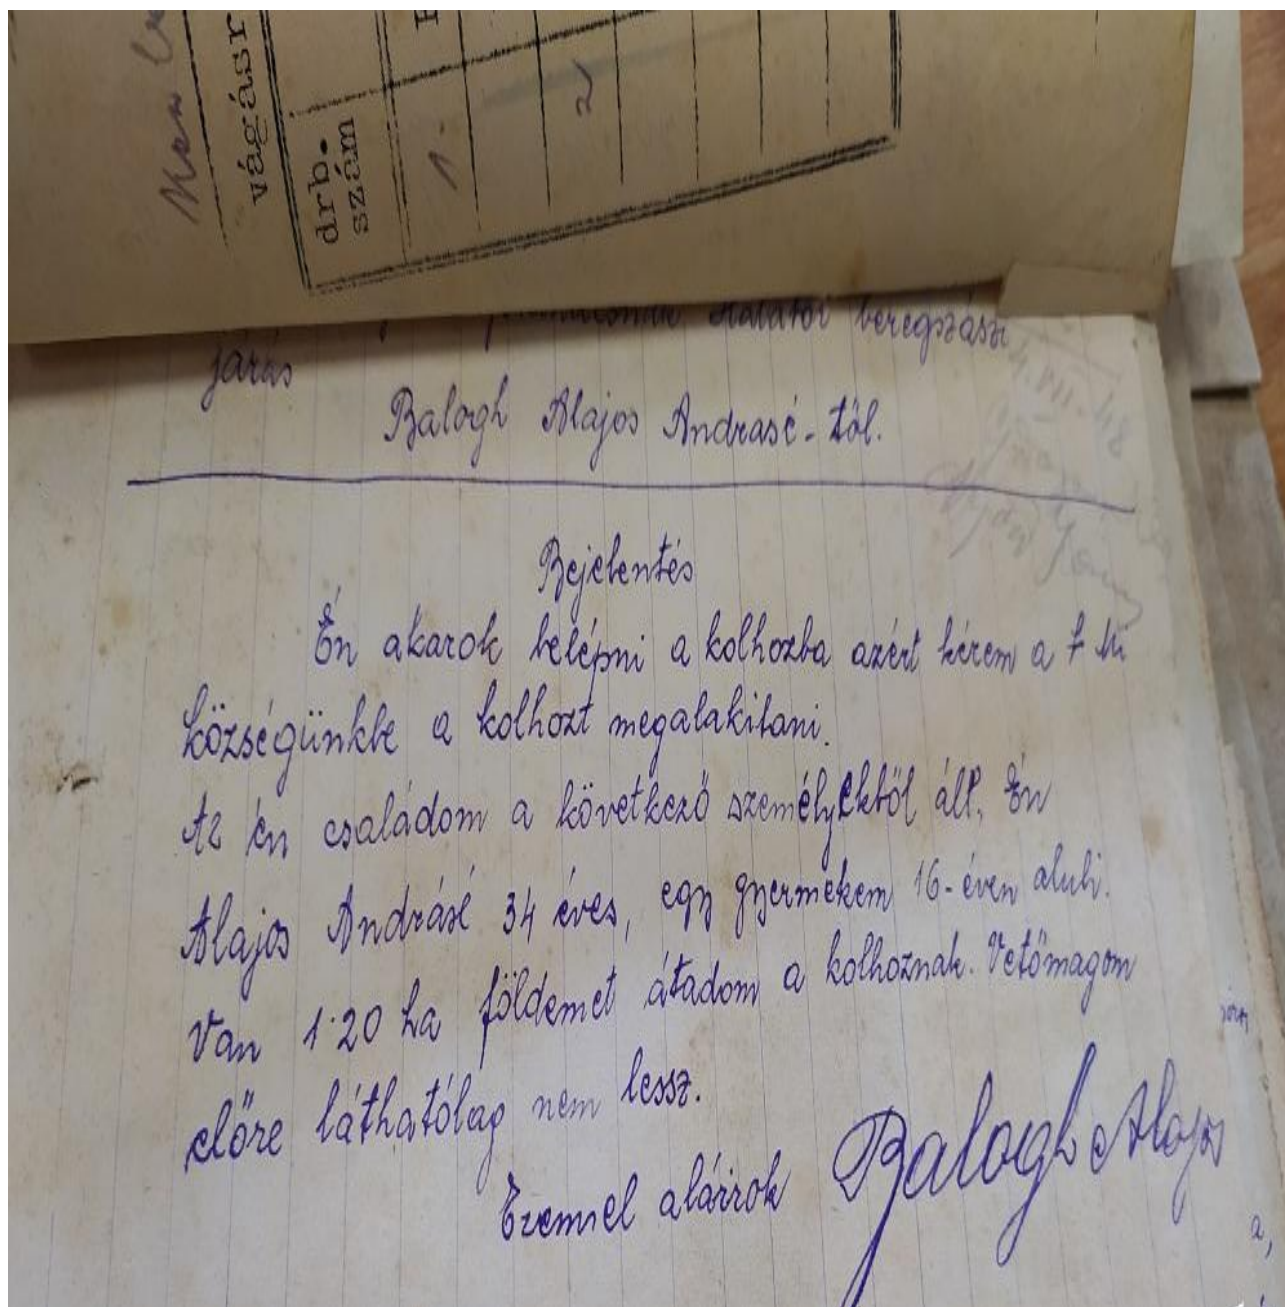 vágásr
drb.
szám
1.
2
beregszászi
járás
Balogh Alajos Andrasé-tól.
Bejelentés
Én akarok belépni a kolhozba azért kérem a
községünkbe a kolhozt megalakitani.
Az én családom a következő személyektöl áll. Én
Alajos Andrásé 34 éves, egy gyermekem 16-éven aluli.
Van 1·20 ha földemet átadom a kolhoznak. Vetőmagom
előre láthatólag nem lessz.
Ezennel aláirok Balogh Alajos
a,